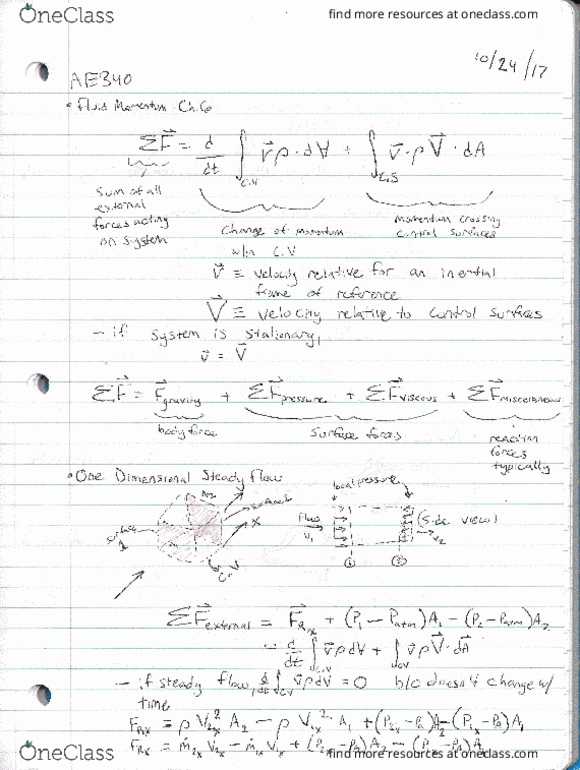 OneClass
find more resources at oneclass.com
10/24/17
AE340
• Fluid Momentum Ch.6
ΣF⃗ = d/dt ∫_C.V v⃗ρ·dV + ∫_C.S v⃗·ρV⃗·dA
Sum of all external forces acting on system
Change of momentum w/in C.V
momentum crossing control surfaces
v⃗ ≡ velocity relative for an inertial
frame of reference
V⃗ ≡ velocity relative to control surfaces
– if system is stationary,
v⃗ = V⃗
ΣF⃗ = F⃗gravity + ΣF⃗pressure + ΣF⃗viscous + ΣF⃗miscellaneous
body force
Surface forces
reaction forces typically
• One Dimensional Steady flow
local pressure
A2
surface 2
X
surface 1
C.V
Flow
V1
(side view)
V2
①
②
ΣF⃗external = F⃗Rx + (P1 − Patm)A1 − (P2 − Patm)A2
= d/dt ∫_C.V v⃗ρdV + ∫_CV v⃗ρV⃗·dA⃗
– if steady flow, d/dt ∫_CV v⃗ρdV = 0 b/c doesn't change w/
time
FRx = ρ V2x² A2 − ρ V1x² · A1 + (P2x − PA)A2 − (P1x − PA)A1
FRx = ṁ2x V2x − ṁ1x V1x + (P2x − PA)A2 − (P1x − PA)A1
OneClass
find more resources at oneclass.com